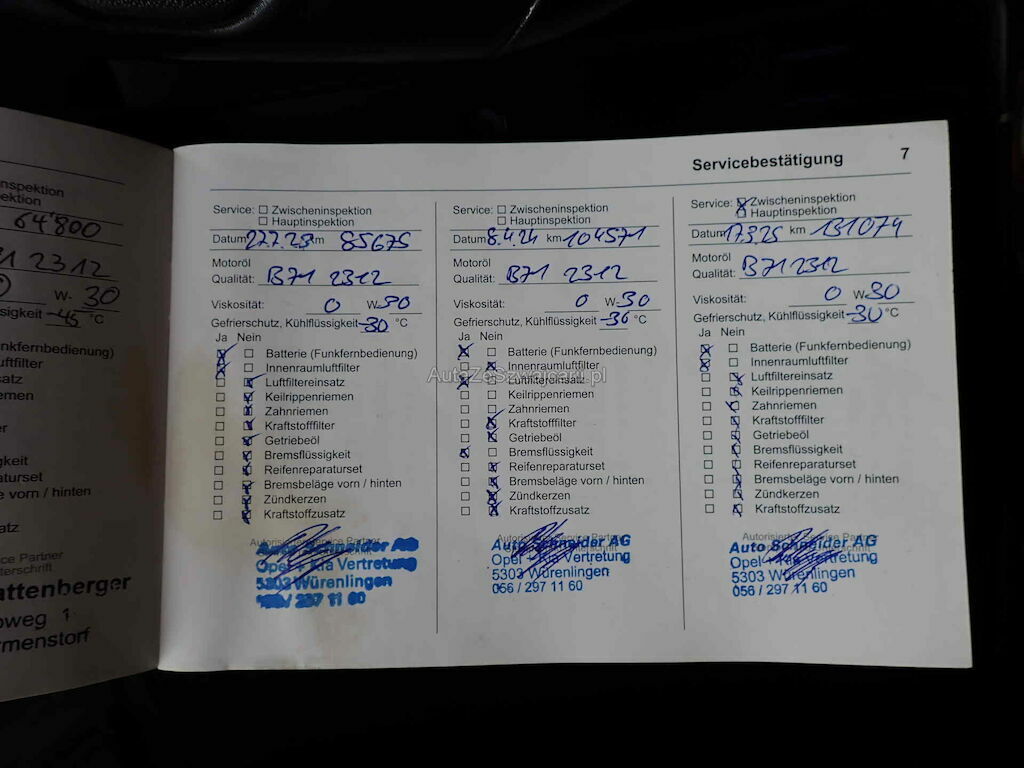 nspektion
ektion
64'800
1 2312
W- 30
ssigkeit -45 °C
nkfernbedienung)
uftfilter
satz
emen
er
gkeit
raturset
e vorn / hinten
atz
ce Partner
terschrift
attenberger
weg 1
menstorf
Servicebestätigung 7
Service: Zwischeninspektion
Hauptinspektion
Datum 27.7.23 km 85675
Motoröl
Qualität: B71 2312
Viskosität: 0 W-30
Gefrierschutz, Kühlflüssigkeit -30 °C
Ja Nein
Batterie (Funkfernbedienung)
Innenraumluftfilter
Luftfiltereinsatz
Keilrippenriemen
Zahnriemen
Kraftstofffilter
Getriebeöl
Bremsflüssigkeit
Reifenreparaturset
Bremsbeläge vorn / hinten
Zündkerzen
Kraftstoffzusatz
Autorisierter Service Partner
Auto Schneider AG
Opel + Kia Vertretung
5303 Würenlingen
056 / 297 11 60
Service: Zwischeninspektion
Hauptinspektion
Datum 8.4.24 km 104571
Motoröl
Qualität: B71 2312
Viskosität: 0 W-30
Gefrierschutz, Kühlflüssigkeit -36 °C
Ja Nein
Batterie (Funkfernbedienung)
Innenraumluftfilter
Luftfiltereinsatz
Keilrippenriemen
Zahnriemen
Kraftstofffilter
Getriebeöl
Bremsflüssigkeit
Reifenreparaturset
Bremsbeläge vorn / hinten
Zündkerzen
Kraftstoffzusatz
Autorisierter Service Partner
Auto Schneider AG
Opel + Kia Vertretung
5303 Würenlingen
056 / 297 11 60
Service: Zwischeninspektion
Hauptinspektion
Datum 17.3.25 km 131074
Motoröl
Qualität: B71 2312
Viskosität: 0 W-30
Gefrierschutz, Kühlflüssigkeit -30 °C
Ja Nein
Batterie (Funkfernbedienung)
Innenraumluftfilter
Luftfiltereinsatz
Keilrippenriemen
Zahnriemen
Kraftstofffilter
Getriebeöl
Bremsflüssigkeit
Reifenreparaturset
Bremsbeläge vorn / hinten
Zündkerzen
Kraftstoffzusatz
Autorisierter Service Partner
Auto Schneider AG
Opel + Kia Vertretung
5303 Würenlingen
056 / 297 11 60
AutaZeSzwajcarii.pl